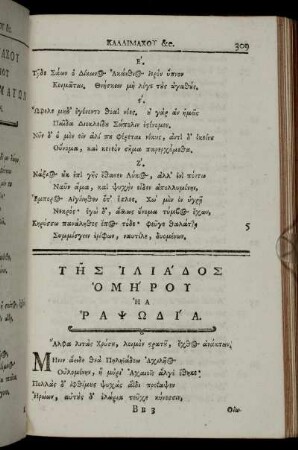 ΚΑΛΛΙΜΑΧΟΥ &c.
309
Ε΄.
Τῇδε Σάων ὁ Δίκωνος Ἀκάνθιος ἱερὸν ὕπνον
Κοιμᾶται, Θνήσκειν μὴ λέγε τὰς ἀγαθάς.
ϛ΄.
Ὤφελε μηδ᾽ ἐγένοντο θοαὶ νέες. ὀ γὰρ ἂν ἡμεῖς
Παῖδα Διοκλείδα Σώπολιν ἐςένομεν.
Νῦν δ᾽ ὁ μὲν εἰν ἁλί πα φέρεται νέκυς, ἀντὶ δ᾽ ἐκείνα
Οὔνομα, καὶ κενεὸν σῆμα παρερχόμεθα.
Ζ΄.
Νάξιος ὀκ ἐπὶ γῆς ἔθανεν Λύκος, ἀλλ᾽ ἐνὶ πόντῳ
Ναῦν ἅμα, καὶ ψυχὴν εἶδεν ἀπολλυμένην,
Ἔμπορος Αἰγίνηθεν ὅτ᾽ ἔπλεε. Χὠ μὲν ἐν ὑγρῇ
Νεκρός· ἐγὼ δ᾽, ἄλλως ὄνομα τύμβος ἔχων,
Κηρύσσω παναληθὲς ἔπος τόδε· Φεῦγε θαλάσσῃ 5
Συμμίσγειν ἐρίφων, ναυτίλε, δυομένων.
ΤΗ͂Σ ἸΛΙΆΔΟΣ
ὉΜΉΡΟΥ
Ἡ Α
ῬΑΨΩΔΊΑ.
Ἄλφα λιτὰς Χρύσα, λοιμὸν στρατῦ, ἔχθος ἀνάκτων.
Μῆνιν ἄειδε θεὰ Πηληϊάδεω Ἀχιλῆος
Οὐλομένην, ἣ μυρί᾽ Ἀχαιοῖς ἄλγε᾽ ἔθηκε·
Πολλὰς δ᾽ ἰφθίμας ψυχὰς ἄϊδι προΐαψεν
Ἡρώων, αὐτὰς δ᾽ ἑλώρια τεῦχε κύνεσσιν,
Bb 3
Οἰω-